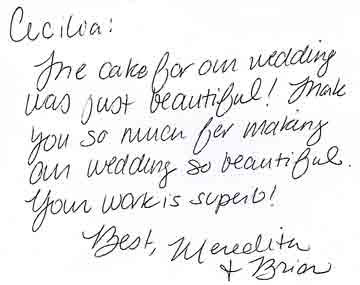 Cecilia:
The cake for our wedding
was just beautiful! Thank
you so much for making
our wedding so beautiful.
Your work is superb!
Best, Meredith
+ Brian